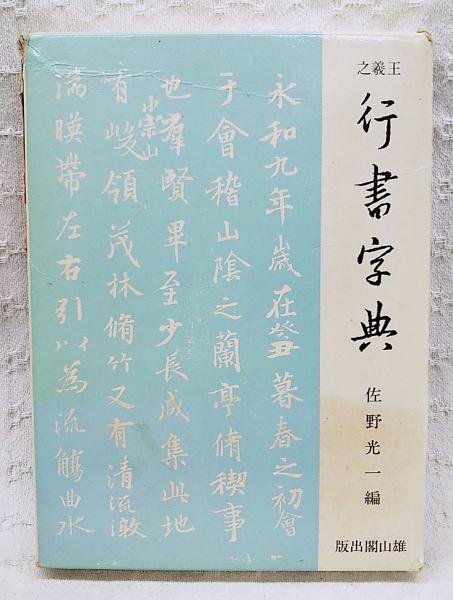 王羲之
行書字典
佐野光一編
雄山閣出版
永和九年歲在癸丑暮春之初會
于會稽山陰之蘭亭脩禊事
也羣賢畢至少長咸集此地
崇山
有峻領茂林脩竹又有清流激
湍暎帶左右引以為流觴曲水